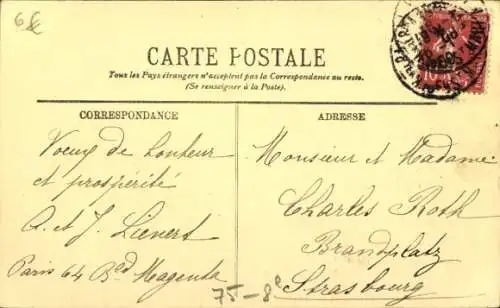 6€
CARTE POSTALE
Tous les Pays étrangers n'acceptent pas la Correspondance au recto.
(Se renseigner à la Poste).
CORRESPONDANCE
Voeux de bonheur
et prospérité
A. et J. Lienert
Paris 64 Bd Magenta
ADRESSE
Monsieur et Madame
Charles Roth
Brandplatz
Strasbourg
75-8e